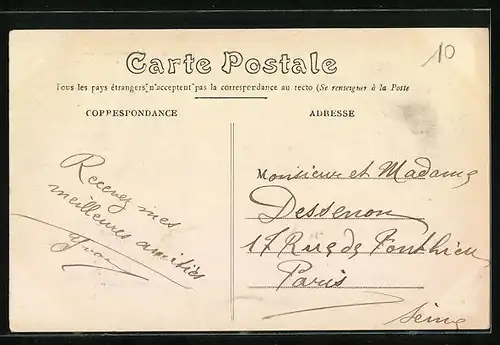 10
Carte Postale
Tous les pays étrangers n'acceptent pas la correspondance au recto (Se renseigner à la Poste
COPPESPONDANCE
ADRESSE
Recevez mes
meilleures amitiés
Yvon
Monsieur et Madame
Dessenon
17 Rue de Ponthieu
Paris
Seine